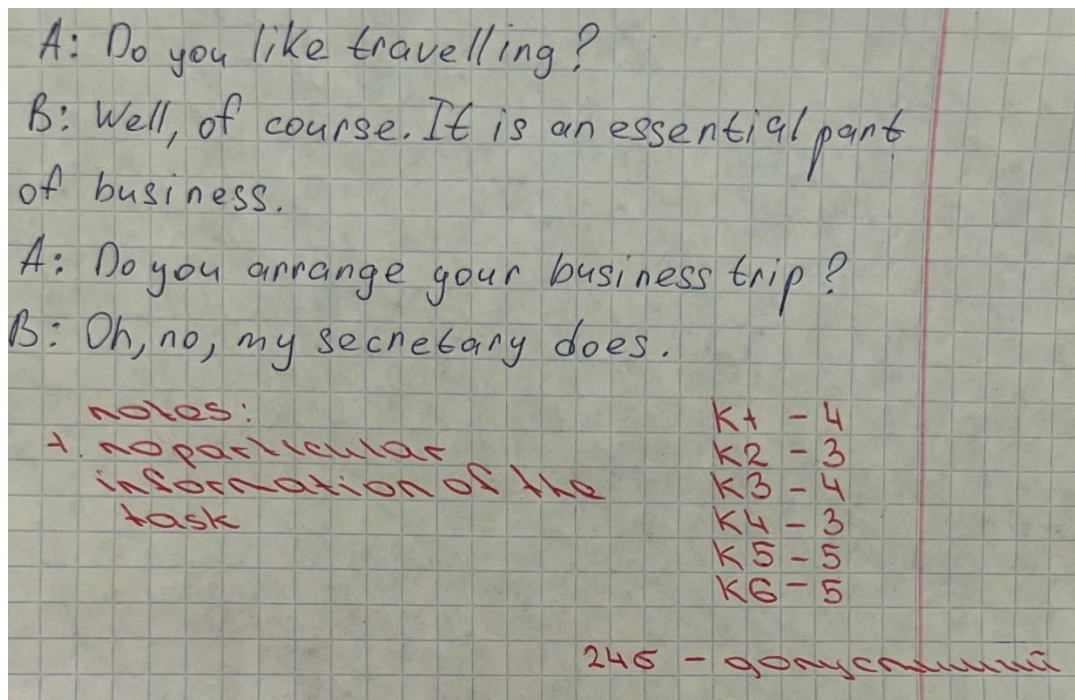 A: Do you like travelling?
B: Well, of course. It is an essential part
of business.
A: Do you arrange your business trip?
B: Oh, no, my secretary does.
notes:
1. no particular
information of the
task
K1 - 4
K2 - 3
K3 - 4
K4 - 3
K5 - 5
K6 - 5
24б - допустимый